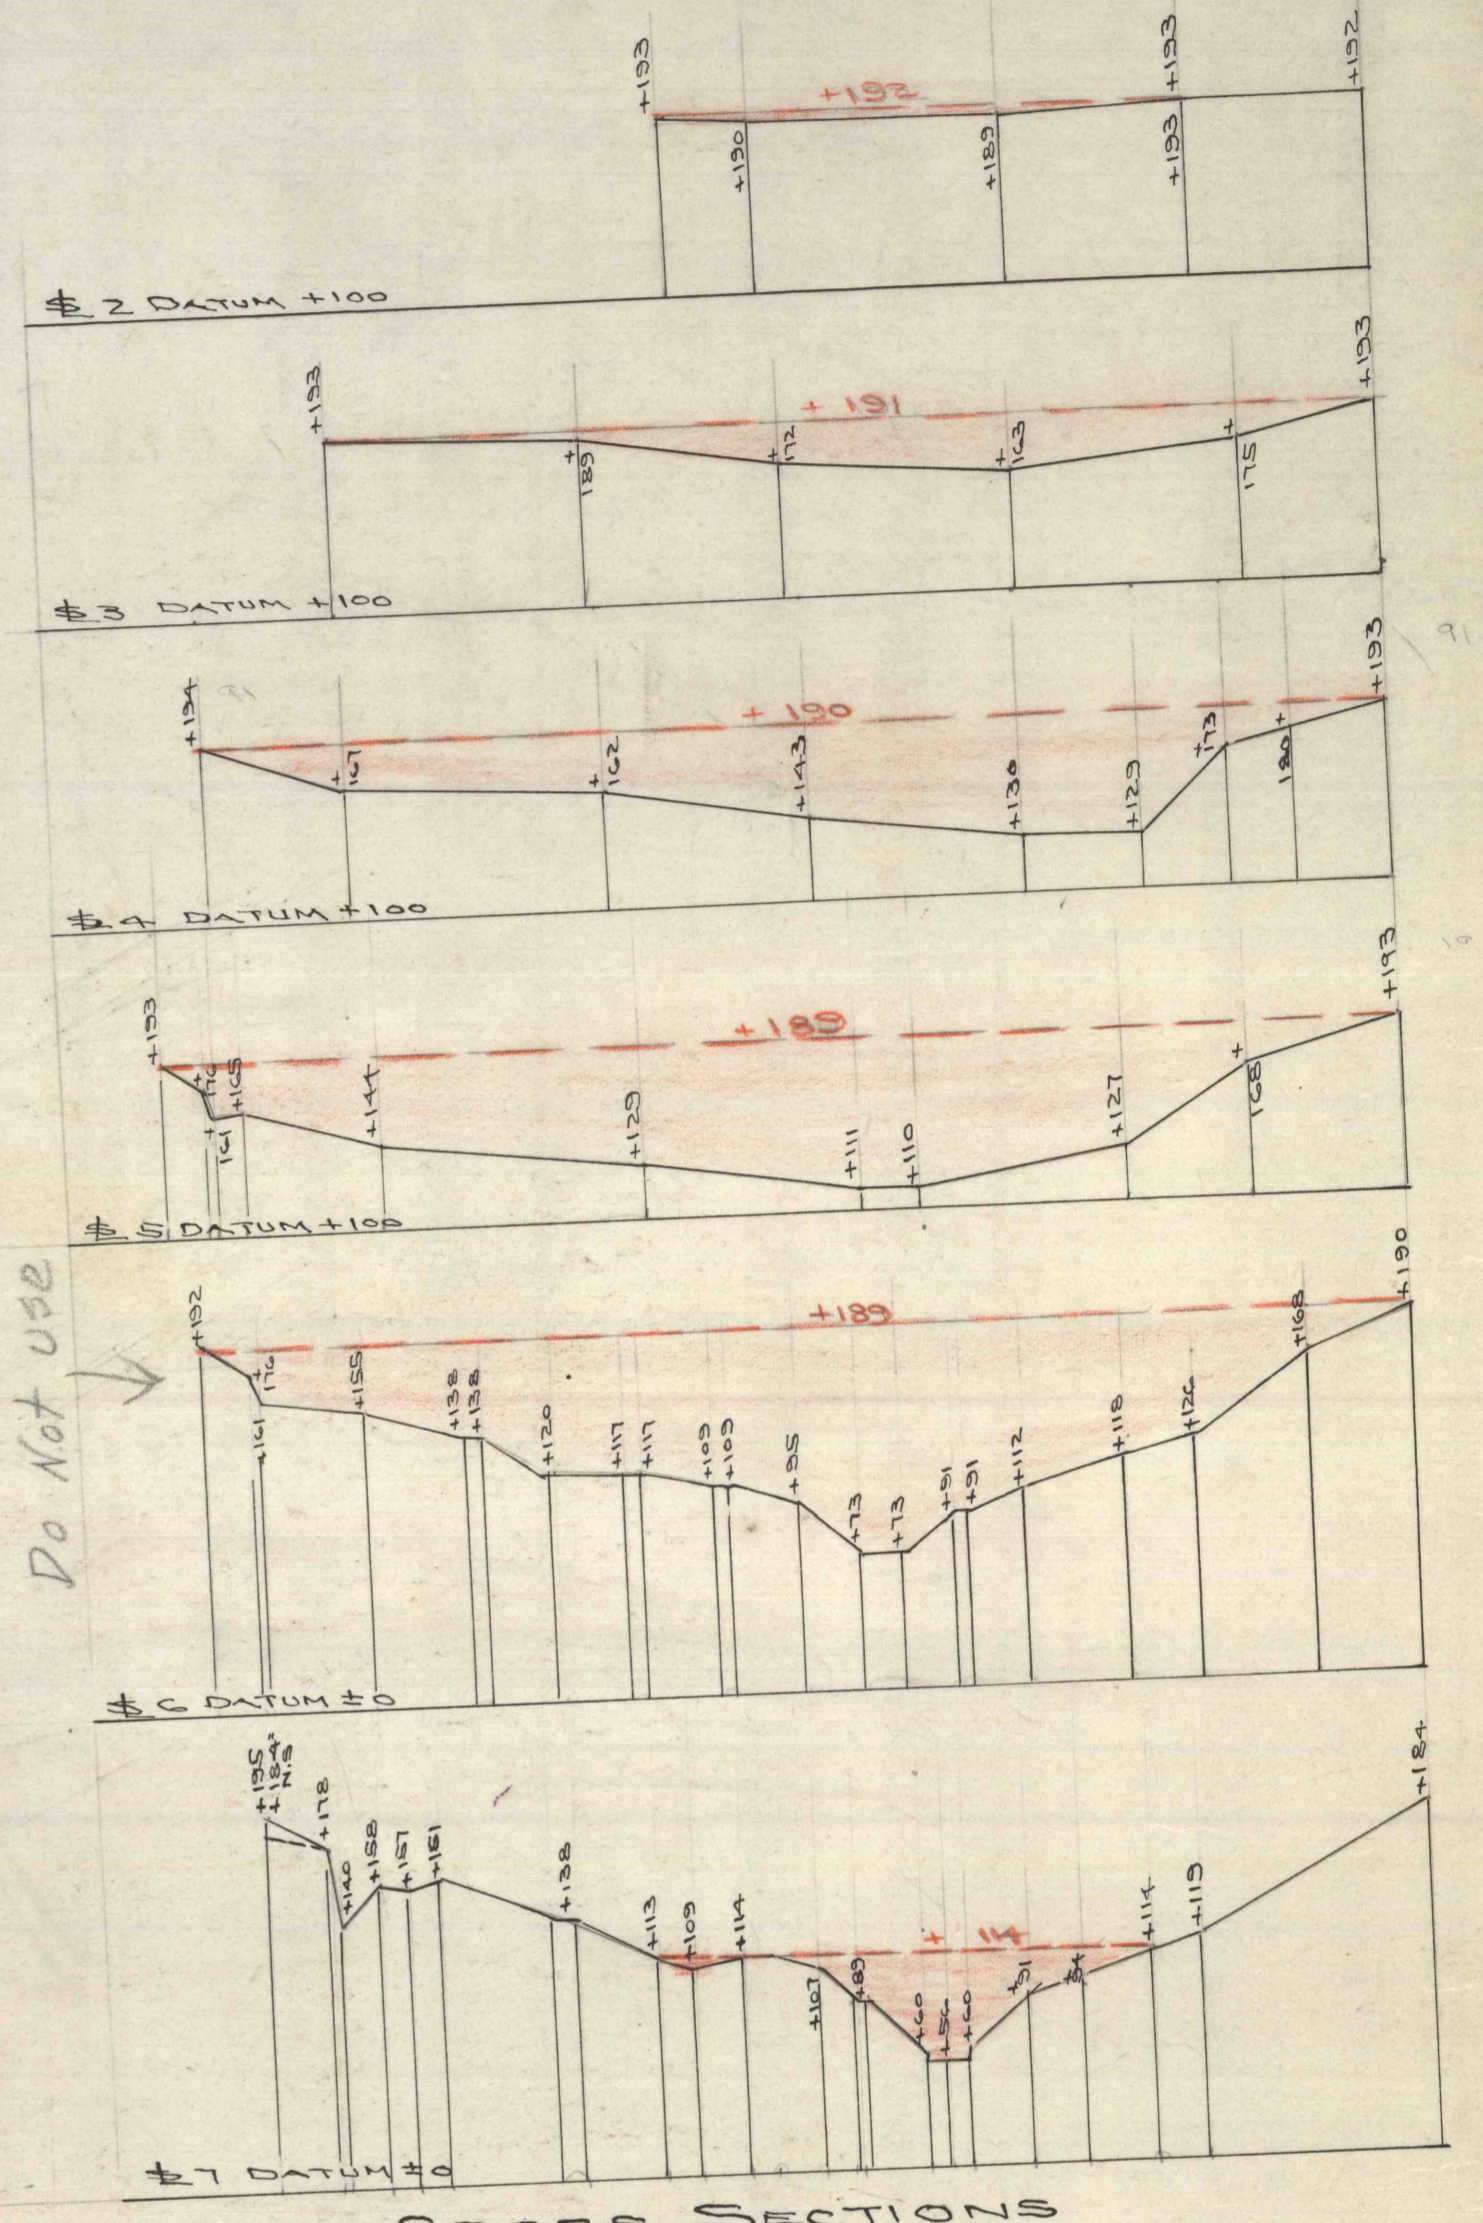 +193 +193 +192
+192
+190 +189 +193
$ 2 DATUM +100
+193 +193
+ 191
+189 +172 +163 +175
$ 3 DATUM +100
+194 +193
91
91
+ 190
+167 +162 +143 +130 +129 +173 +180
$ 4 DATUM +100
+193 +193
+ 189
+176 +165 +161 +144 +129 +111 +110 +127 +168
$ 5 DATUM +100
Do Not use
+192 +190
+189
+176 +161 +155 +138 +138 +120 +117 +117 +109 +109 +95 +73 +73 +91 +91 +112 +118 +126 +168
$ 6 DATUM ±0
+195
+184
N.S
+178 +140 +158 +157 +151 +138 +113 +109 +114 +107 +89 +60 +56 +60 +91 +114 +119 +184
+ 114
$ 7 DATUM ±0
CROSS SECTIONS